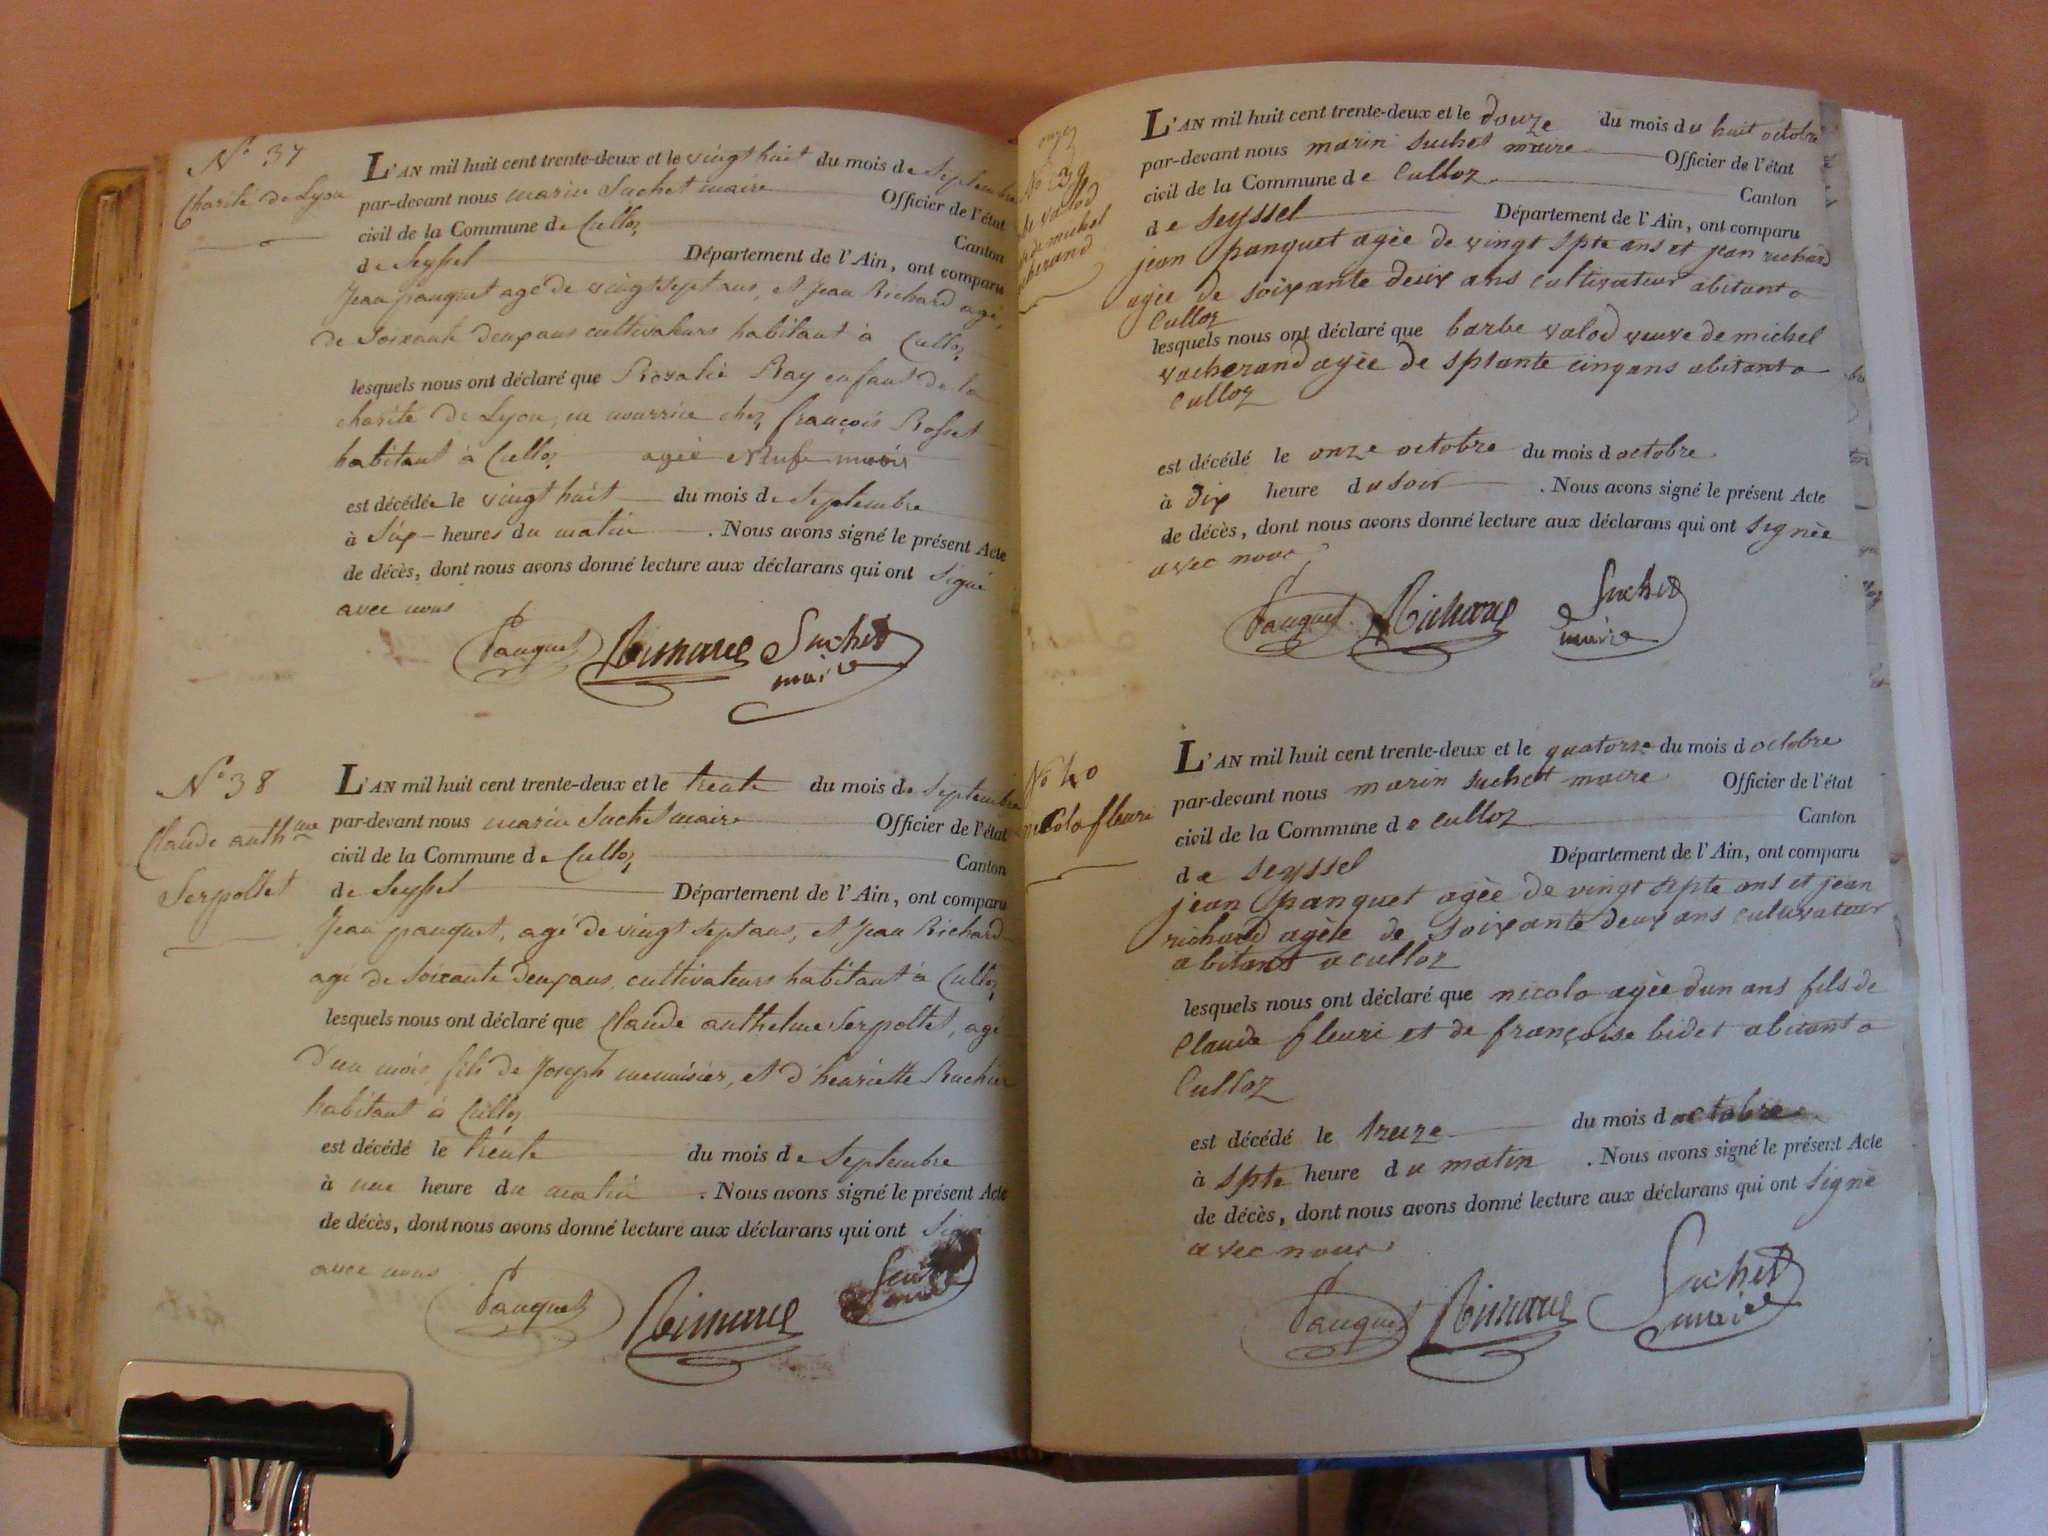 N° 37
Charité de Lyon
L'AN mil huit cent trente-deux et le vingt huit du mois de Septembre
par-devant nous marin Suchet maire Officier de l'état
civil de la Commune de Culloz Canton
de Seyssel Département de l'Ain, ont comparu
Jean pauquet agé de vingt sept ans, et Jean Richard agé
de Soixante deux ans cultivateurs habitant à Culloz
lesquels nous ont déclaré que Rosalie Ray enfant de la
charité de Lyon, en nourrice chez françois Rosset
habitant à Culloz agée Neufe mois
est décédée le vingt huit du mois de Septembre
à Six heures du matin. Nous avons signé le présent Acte
de décès, dont nous avons donné lecture aux déclarans qui ont Signé
avec nous
Pauquet Richard Suchet
maire
N° 38
Claude anthme
Serpollet
L'AN mil huit cent trente-deux et le trente du mois de Septembre
par-devant nous marin Suchet maire Officier de l'état
civil de la Commune de Culloz Canton
de Seyssel Département de l'Ain, ont comparu
Jean pauquet, agé de vingt sept ans, et Jean Richard
agé de Soixante deux ans, cultivateurs habitant à Culloz
lesquels nous ont déclaré que Claude anthelme Serpollet, agé
d'un mois, fils de Joseph menuisier, et d'henriette
habitant à Culloz
est décédé le trente du mois de Septembre
à une heure du matin. Nous avons signé le présent Acte
de décès, dont nous avons donné lecture aux déclarans qui ont Signé
avec nous
Pauquet Richard
onze
N° 39
valod
de michel
L'AN mil huit cent trente-deux et le douze du mois du huit octobre
par-devant nous marin suchet maire Officier de l'état
civil de la Commune de Culloz Canton
de seyssel Département de l'Ain, ont comparu
jean panquet agèe de vingt spte ans et jean richard
agèe de soixante deux ans cultivateur abitant a
Culloz
lesquels nous ont déclaré que barbe valod veuve de michel
vacherand agèe de sptante cinq ans abitant a
Culloz
est décédé le onze octobre du mois d octobre
à dix heure du soir. Nous avons signé le présent Acte
de décès, dont nous avons donné lecture aux déclarans qui ont signèe
avec nous
Pauquet Richard Suchet
maire
No 40
necolo fleuri
L'AN mil huit cent trente-deux et le quatorze du mois d octobre
par-devant nous marin suchet maire Officier de l'état
civil de la Commune de culloz Canton
de seyssel Département de l'Ain, ont comparu
jean panquet agèe de vingt septe ans et jean
richard agèe de soixante deux ans cultivateur
abitant a culloz
lesquels nous ont déclaré que necolo agèe dun ans fils de
Claude fleuri et de françoise bidet abitant a
Culloz
est décédé le treze du mois d octobre
à spte heure du matin. Nous avons signé le présent Acte
de décès, dont nous avons donné lecture aux déclarans qui ont signè
avec nous
Pauquet Richard Suchet
maire